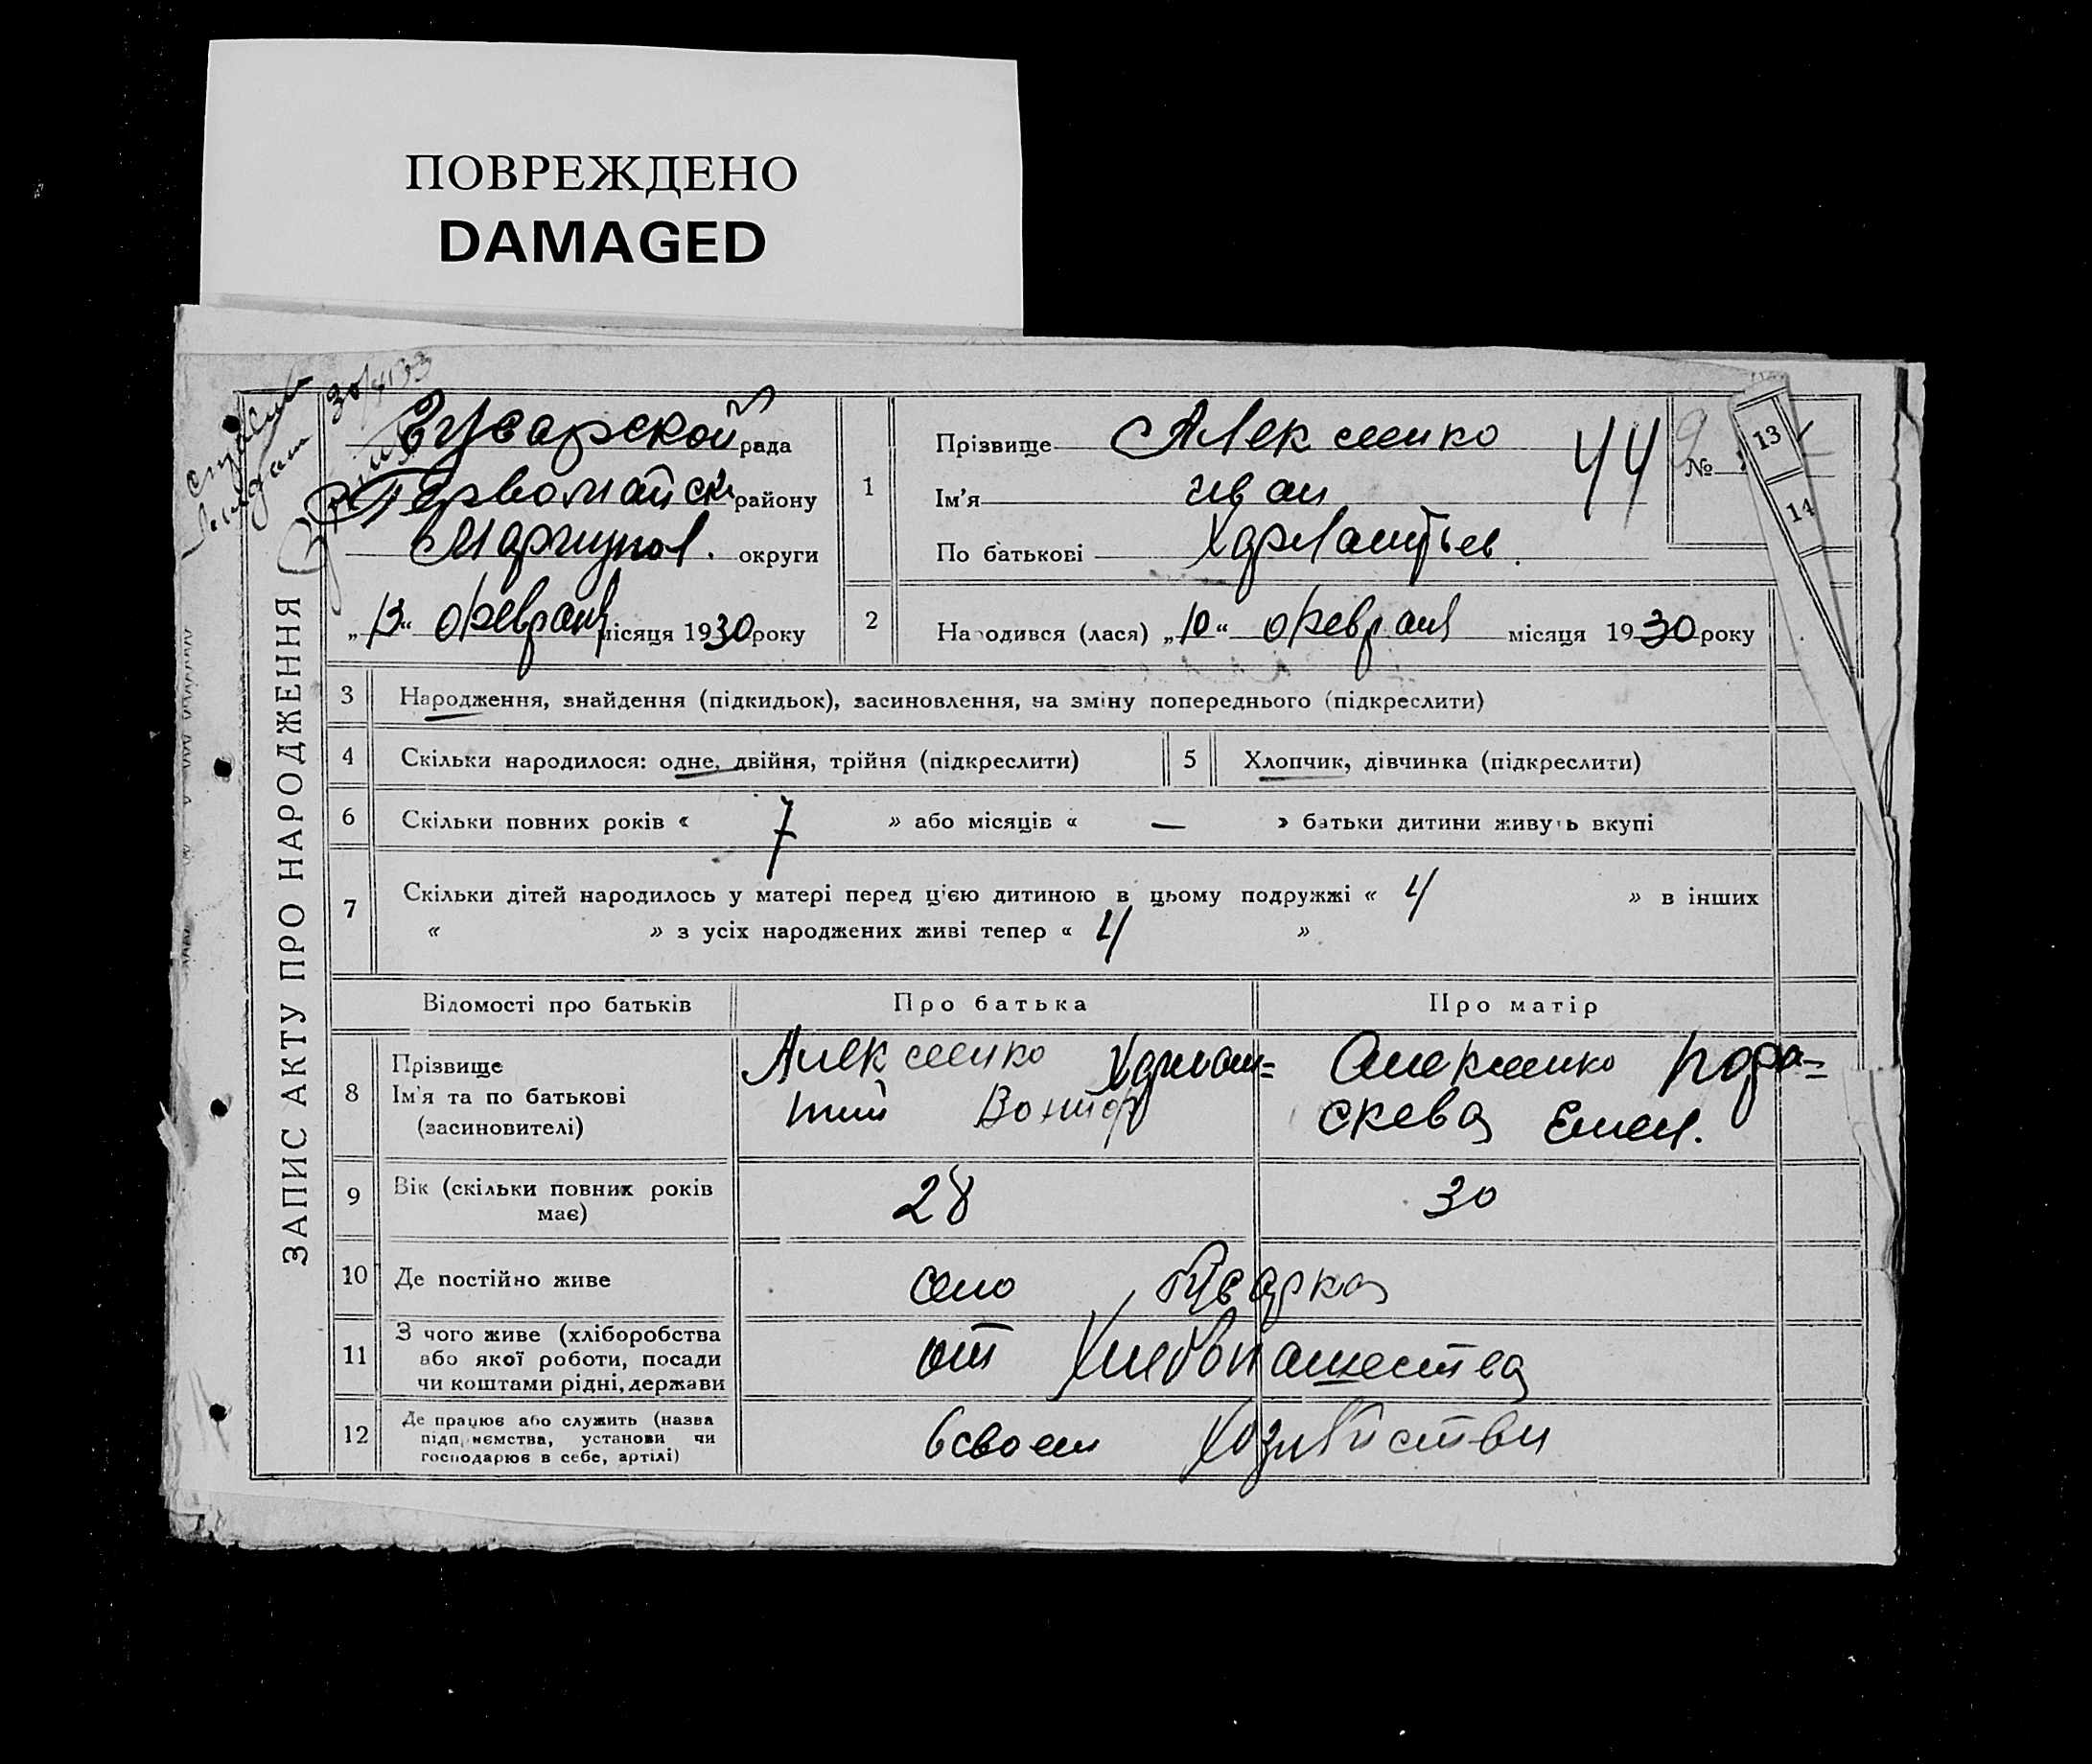 ПОВРЕЖДЕНО
DAMAGED
ЗАПИС АКТУ ПРО НАРОДЖЕННЯ
Зусарской рада
Первомайск району
Мариупол. округи
„13“ февраля місяця 1930 року
1
Прізвище Алексеенко 44
Ім'я Иван
По батькові Харлантьев.
№
13
14
2 Народився (лася) „10“ февраля місяця 1930 року
3 Народження, знайдення (підкидьок), засиновлення, на зміну попереднього (підкреслити)
4 Скільки народилося: одне, двійня, трійня (підкреслити)
5 Хлопчик, дівчинка (підкреслити)
6 Скільки повних років « 7 » або місяців « — » батьки дитини живуть вкупі
7 Скільки дітей народилось у матері перед цією дитиною в цьому подружжі « 4 » в інших
« » з усіх народжених живі тепер « 4 »
Відомості про батьків Про батька Про матір
8
Прізвище
Ім'я та по батькові
(засиновителі)
Алексеенко Харлам=
Алексеенко Пара=
скева Емел.
9 Вік (скільки повних років
має)
28 30
10 Де постійно живе село
11 З чого живе (хліборобства
або якої роботи, посади
чи коштами рідні, держави
от Хлебопашества
12 Де працює або служить (назва
підприємства, установи чи
господарює в себе, артілі)
в своем хозяйстви